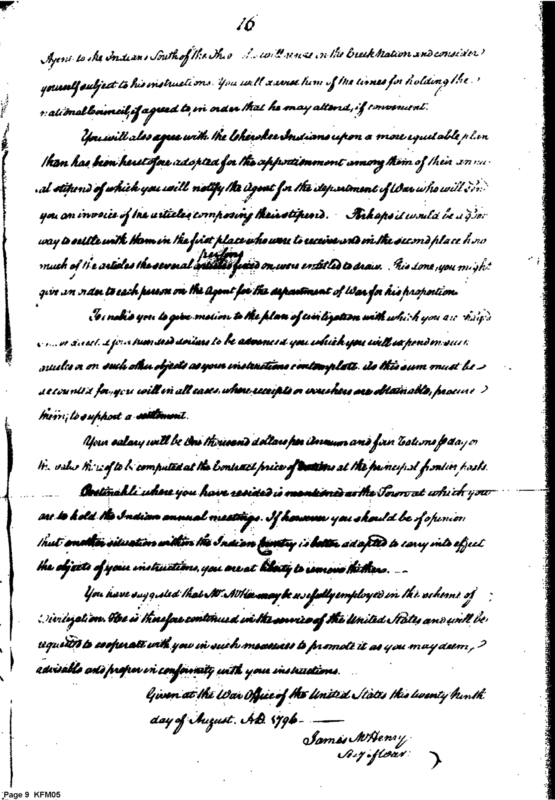 16
Agent to the Indians South of the Ohio who will reside in the Creek Nation and consider
yourself subject to his instructions. You will advise him of the times for holding the
national Council, if agreed to, in order that he may attend, if convenient.
You will also agree with the Cherokee Indians upon a more equitable plan
than has been heretofore adopted for the apportionment among them of their annu-
al stipend of which you will notify the Agent for the department of War who will
you an invoice of the articles composing their stipend. Perhaps it would be a good
way to settle with them in the first place who were to receive and in the second place how
persons
much of the articles the several fixed on were entitled to draw. This done, you might
give an order to each person on the Agent for the department of War for his proportion.
To enable you to give motion to the plan of civilization with which you are charged
hundred dollars to be advanced you which you will expend on such
articles or on such other objects as your instructions contemplate. As this sum must be
accounted for, you will in all cases, where receipts or vouchers are obtainable, procure
them, to support a settlement.
Your salary will be One thousand dollars per Annum and four rations day or
the value thereof to be computed at the Contract price of rations at the principal frontier posts.
where you have resided is mentioned as the Town at which you
are to hold the Indian annual meetings. If however you should be of opinion
that another situation within the Indian Country is better adapted to carry into effect
the objects of your instructions, you are at liberty to remove thither.
You have suggested that Mr. may be usefully employed in the scheme of
Civilization. He is therefore continued in the service of the United States and will be
requested to cooperate with you in such measures to promote it as you may deem,
advisable and proper in conformity with your instructions.
Given at the War Office of the United States this twenty ninth
day of August. AD. 1796
James McHenry
Secy. of War.
Page 9 KFM05